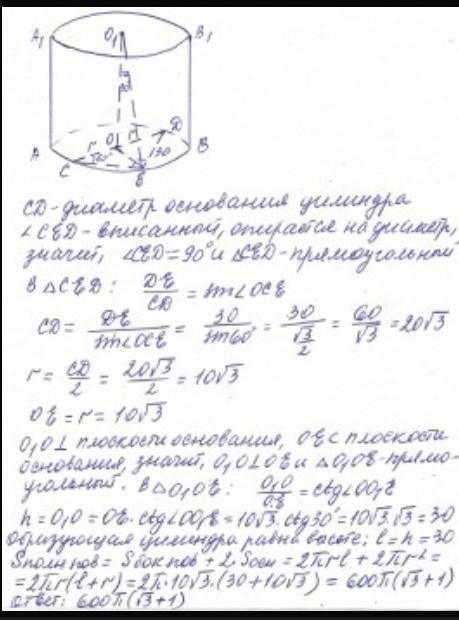 A₁ O₁ B₁
A O D B
C r 60° E 30
CD - диаметр основания цилиндра
∠CED - вписанный, опирается на диаметр,
значит, ∠CED = 90° и △CED - прямоугольный
В △CED: DE/CD = sin∠OCE
CD = DE/sin∠OCE = 30/sin60° = 30/(√3/2) = 60/√3 = 20√3
r = CD/2 = 20√3/2 = 10√3
OE = r = 10√3
O₁O ⊥ плоскости основания, OE ⊂ плоскости
основания, значит, O₁O ⊥ OE и △O₁OE - прямо-
угольный. В △O₁OE: O₁O/OE = ctg∠OO₁E
h = O₁O = OE · ctg∠OO₁E = 10√3 · ctg30° = 10√3 · √3 = 30
Образующая цилиндра равна высоте; l = h = 30
Sполн пов = Sбок пов + 2 · Sосн = 2πrl + 2πr² =
= 2πr(l + r) = 2π · 10√3 · (30 + 10√3) = 600π(√3 + 1)
Ответ: 600π(√3 + 1)